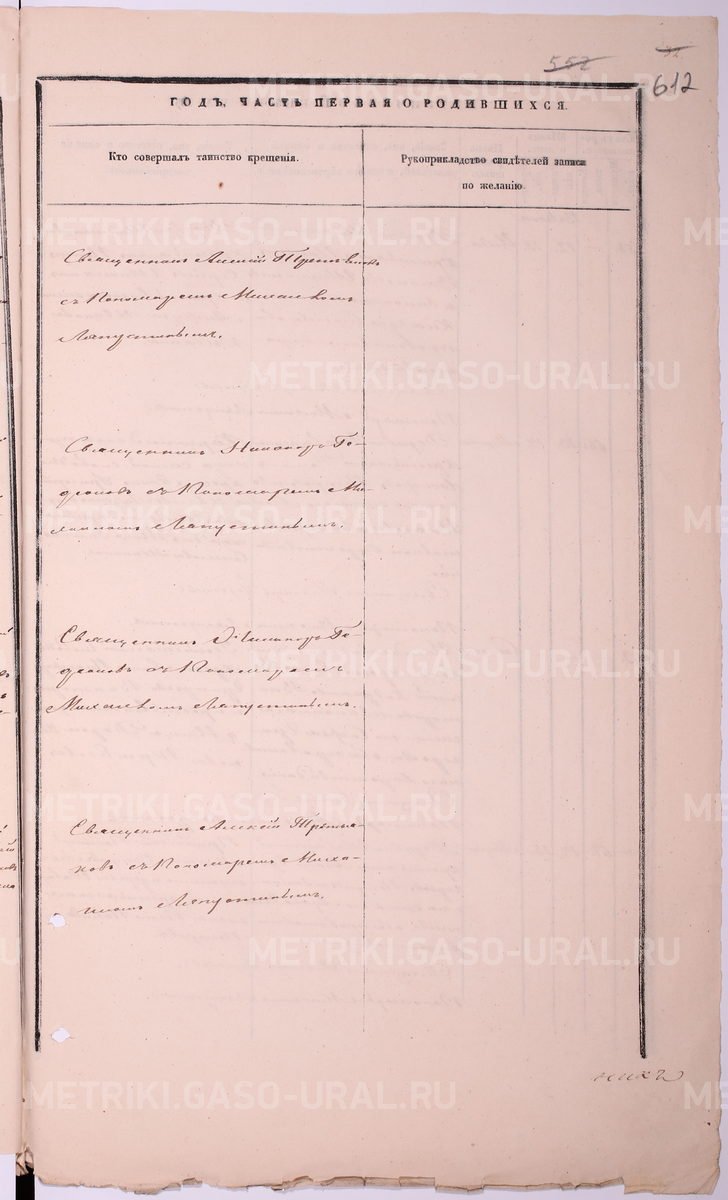 552
612
ГОДЪ, ЧАСТЬ ПЕРВАЯ О РОДИВШИХСЯ.
Кто совершалъ таинство крещенія.
Рукоприкладство свидѣтелей записи
по желанію.
Священникъ Алексій Третьяковъ
съ Пономаремъ Михаиломъ
Лапустинымъ.
Священникъ Никаноръ
съ Пономаремъ Ми-
хаиломъ Лапустинымъ.
Священникъ Никаноръ
съ Пономаремъ
Михаиломъ Лапустинымъ.
Священникъ Алексій Третья-
ковъ съ Пономаремъ Миха-
иломъ Лапустинымъ.
никъ
METRIKI.GASO-URAL.RU